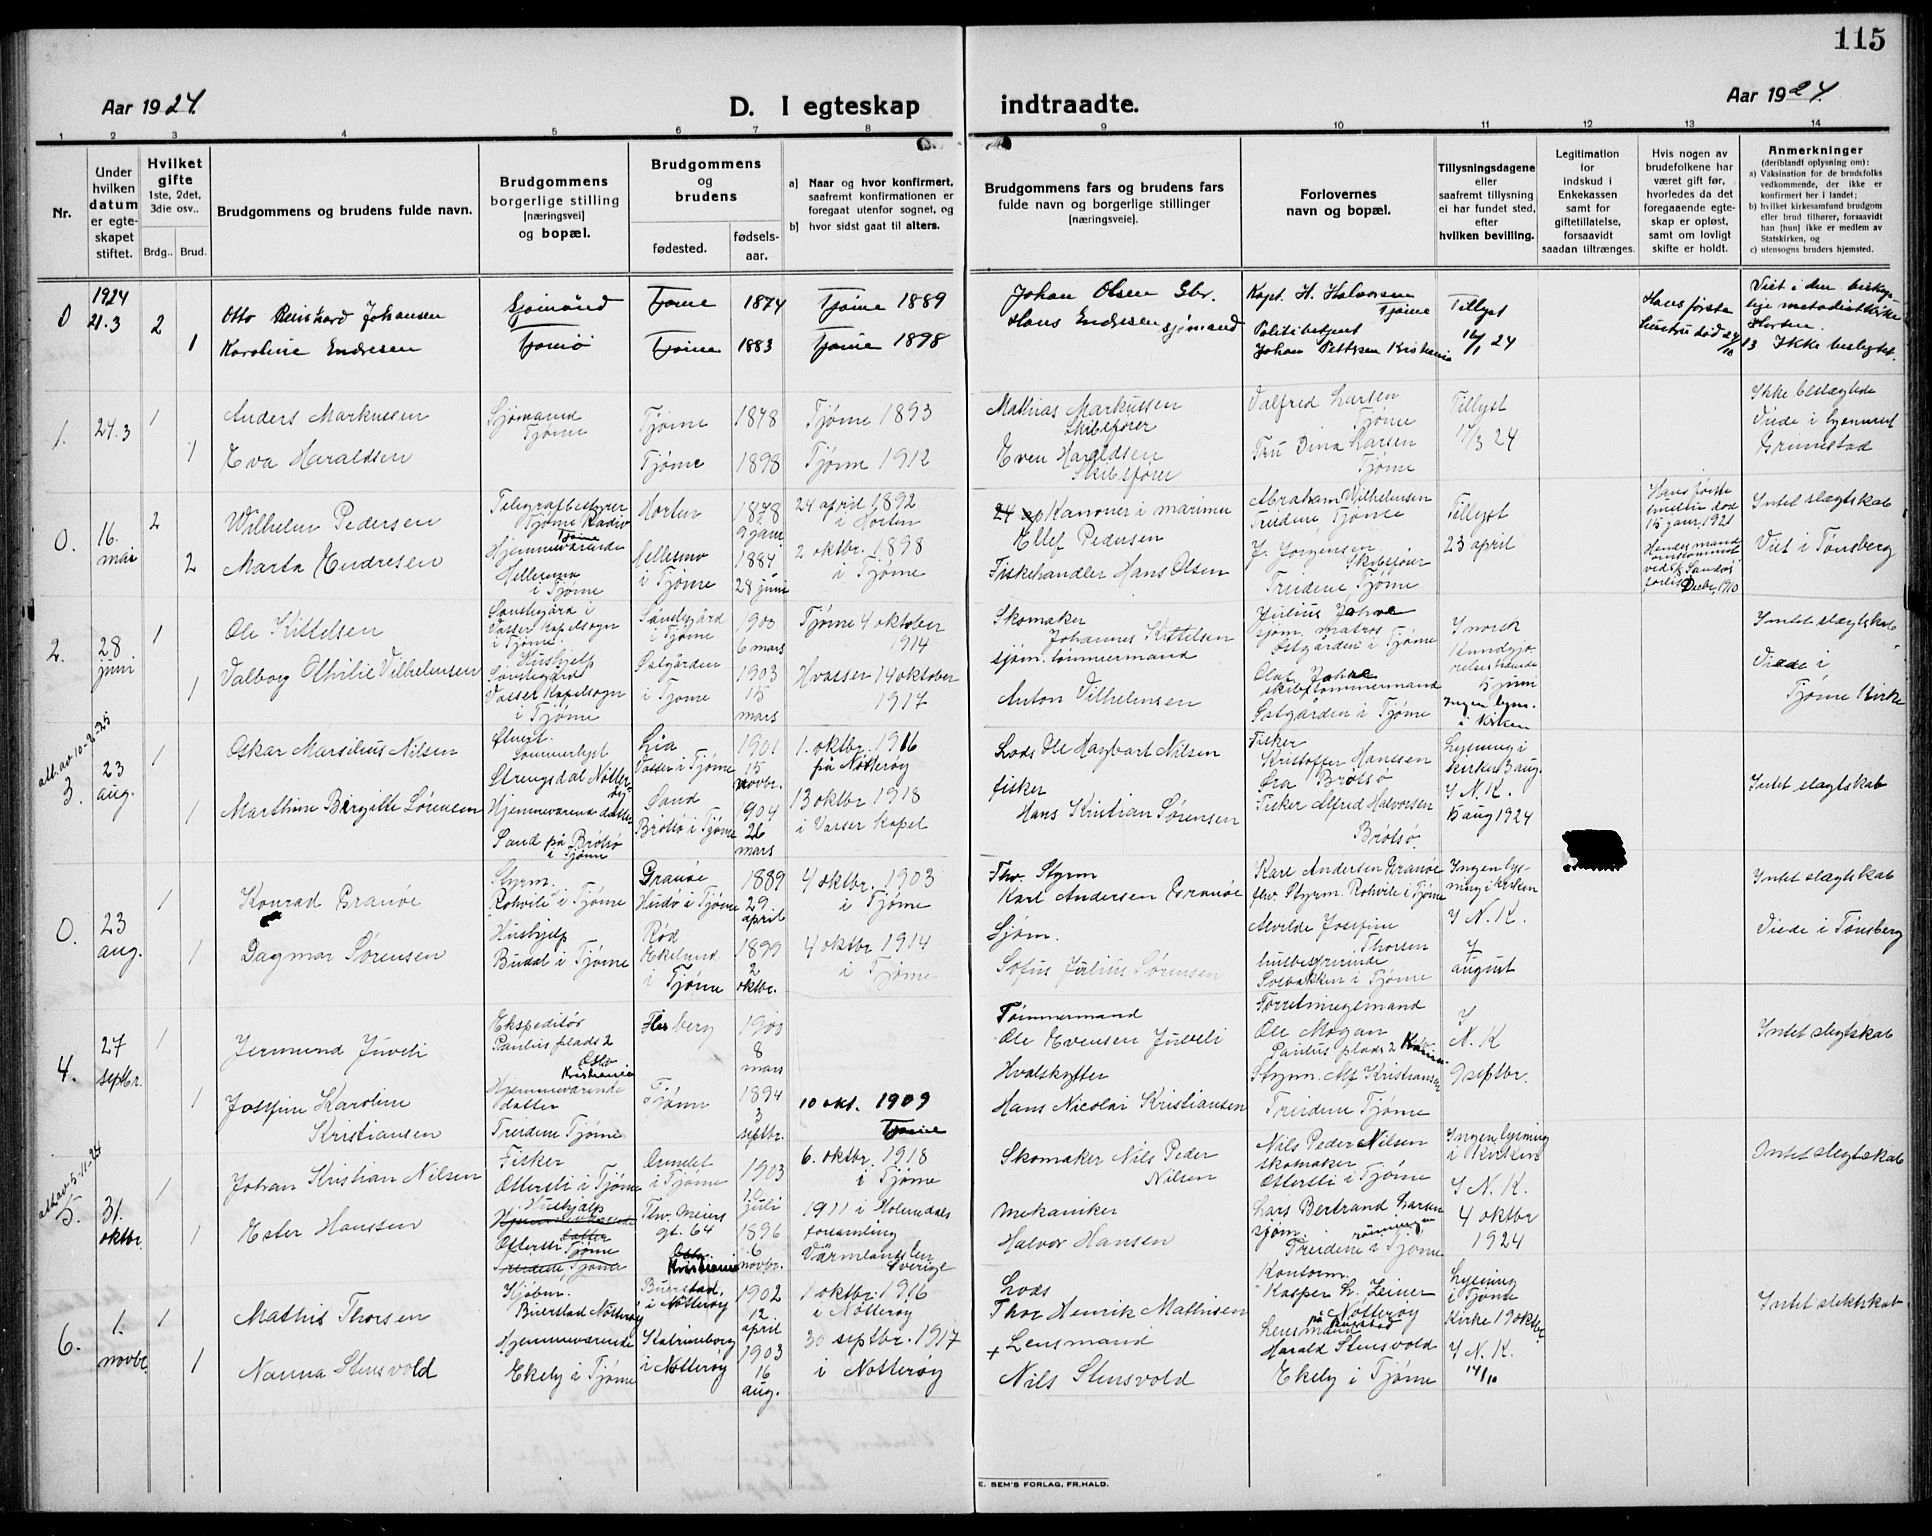 115
Aar 1924.
D. I egteskap indtraadte.
Aar 1924.
1 2 3 4 5 6 7 8 9 10 11 12 13 14
Nr.
Under hvilken datum er egteskapet stiftet.
Hvilket gifte 1ste, 2det, 3die osv..
Brdg.. Brud.
Brudgommens og brudens fulde navn.
Brudgommens borgerlige stilling [næringsvei] og bopæl.
Brudgommens og brudens
fødested.
fødsels-aar.
a) Naar og hvor konfirmert, saafremt konfirmationen er foregaat utenfor sognet, og
b) hvor sidst gaat til alters.
Brudgommens fars og brudens fars fulde navn og borgerlige stillinger [næringsveie].
Forlovernes navn og bopæl.
Tillysningsdagene eller saafremt tillysning ei har fundet sted, efter hvilken bevilling.
Legitimation for indskud i Enkekassen samt for giftetillatelse, forsaavidt saadan tiltrænges.
Hvis nogen av brudefolkene har været gift før, hvorledes da det foregaaende egteskap er opløst, samt om lovligt skifte er holdt.
Anmerkninger
(deriblandt oplysning om):
a) Vaksination for de brudefolks vedkommende, der ikke er konfirmert her i landet;
b) hvilket kirkesamfund brudgom eller brud tilhører, forsaavidt han [hun] ikke er medlem av Statskirken, og
c) utensogns bruders hjemsted.
0 1924 21.3 2 Otto Reinhard Johansen Sjømand Tjøme 1874 Tjøme 1889 Johan Olsen Gbr. Kapt. H. Halvorsen Tjøme Tillyst 16/1 24 Hans første hustru død 24/10 13 Viet i den biskoplige metodistkirke Horten. Ikke beslegtet.
1 Karoline Endresen Tjømø Tjøme 1883 Tjøme 1898 Hans Endresen sjømand Politibetjent Johan Pettersen Kristiania
1. 24.3 1 Anders Markussen Sjømand Tjøme Tjøme 1878 Tjøme 1893 Mathias Markussen Skibsfører Valfred Larsen Tjøme Tillyst 17/3 24 Ikke beslægtede Viede i hjemmet Grimestad
1 Eva Haraldsen Tjøme 1898 Tjøme 1912 Even Haraldsen Skibsfører Fru Dina Larsen Tjøme
0. 16. mai 2 Wilhelm Pedersen Telegrafbestyrer Tjøme Radio Tjøme Horten 1878 9 janr 24 april 1892 i Horten Kanoner i marinen Ellef Pedersen Abraham Wilhelmsen Treidene Tjøme Tillyst 23 april Hans første hustru død 15 janr. 1921 Intet slægtskab Viet i Tønsberg
2 Marta Endresen Hjemmeværende Hellesmo i Tjøme Hellesmo i Tjøme 1884 28 juni 2 oktbr. 1898 i Tjøme Fiskehandler Hans Olsen J. Jørgensen Skibsfører Treidene Tjøme
2. 28 juni 1 Ole Kittelsen Sønstegård i Vasser Kapelsogn i Tjøme. Sønstegård i Tjøme 1900 6 mars Tjøme 4 oktober 1914 Skomaker Johannes Kittelsen Julius Jahre sjøm. matros Østgården i Tjøme I norsk Kundgjørelsestidende 5 juni Ingen lysn. i kirken Intet slægtskab Viede i Tjøme Kirke
1 Valborg Othilie Vilhelmsen Hushjelp Sønstegård Vasser Kapelsogn i Tjøme Østgården i Tjøme 1903 15 mars Hvasser 14 oktober 1917 sjøm. tømmermand Anton Vilhelmsen Olaf Jahre skibstømmermand Østgården i Tjøme
3. 23 aug. 1 Oskar Marsilius Nilsen Sommerlyst Strengsdal Nøtterøy Lia Vasser i Tjøme 1901 15 novbr. 1. oktbr. 1916 på Nøtterøy Lods Ole Hagbart Nilsen Fisker Kristoffer Hansen Øra Brøtsø Lysning i kirken 3 aug. I N. K. 5 aug 1924 Intet slægtskab
1 Marthine Birgitte Sørensen Hjemmeværende datter Sand på Brøtsø i Tjøme Sand Brøtsø i Tjøme 904 26 mars 13 oktbr 1918 i Vasser Kapel fisker Hans Kristian Sørensen Fisker Alfred Halvorsen Brøtsø.
0. 23 aug. 1 Konrad Granøe Styrm. Rohvile i Tjøme Granøe Hudø i Tjøme 1889 29 april 4 oktbr. 1903 i Tjøme Fhv. Styrm Karl Andersen Granøe Karl Andersen Granøe fhv. Styrm. Rohvile i Tjøme Ingen lysning i kirken I N. K. 7 august Intet slægtskab Viede i Tønsberg
1 Dagmar Sørensen Hushjelp Budal i Tjøme Rød Ekelund i Tjøme 1899 2 oktbr. 4 oktbr. 1914 i Tjøme Sjøm. Sofus Julius Sørensen Alvilde Josefine Thorsen husbestyrerinde Solbakken i Tjøme
4. 27 septbr. 1 Jermund Juveli Ekspeditør Paulus plads 2 Oslo Kristiania Flesberg 1900 8 mars Tømmermand Ole Evensen Juveli Forretningsmand Ole Mogan Paulus plads 2 I N. K 9 septbr. Intet slegtskab
1 Josefine Karoline Kristiansen Hjemmeværende datter Treidene Tjøme Tjøme 1894 3 septbr. 10 okt. 1909 Tjøme Hvalskytter Hans Nicolai Kristiansen Styrm. Alf Kristiansen Treidene Tjøme
5. 31. oktbr. 1 Johan Kristian Nilsen Fisker Ottersti i Tjøme i Tjøme 1903 1. juli 6. oktbr. 1918 i Tjøme Skomaker Nils Peder Nilsen Nils Peder Nilsen skomaker Ottersti i Tjøme Ingen lysning i kirken I N. K. 4 oktbr 1924 Intet slegtskab
1 Ester Hanssen Hushjelp Hjemmeværende datter Ottersti Tjøme Treidene, Tjøme Thv. Meiers gt. 64 Oslo Kristiania 1896 6 novbr. 1911 i Holmedals forsamling Värmlands len Sverige mekaniker Halvor Hansen Lars Bertrand Larsen sjøm. Treidene i Tjøme
6. 1. novbr. 1 Mathis Thorsen Buerstad Nøtterøy Buerstad, i Nøtterøy 1902 12 april 1 oktbr. 1916 i Nøtterøy Lods Thor Henrik Mathisen Kontorm. Kasper L. Zeiner på Buerstad Nøtterøy Lysning i Tjøme Kirke 19 oktbr. I N. K. 14/10 Intet slektskab
1 Nanna Stensvold Hjemmeværende Ekely i Tjøme Katrineborg i Nøtterøy 1903 16 aug. 30 septbr. 1917 i Nøtterøy + Lensmand Nils Stensvold Lensmand Harald Stensvold Ekely i Tjøme
E. SEM'S FORLAG, FR.HALD.